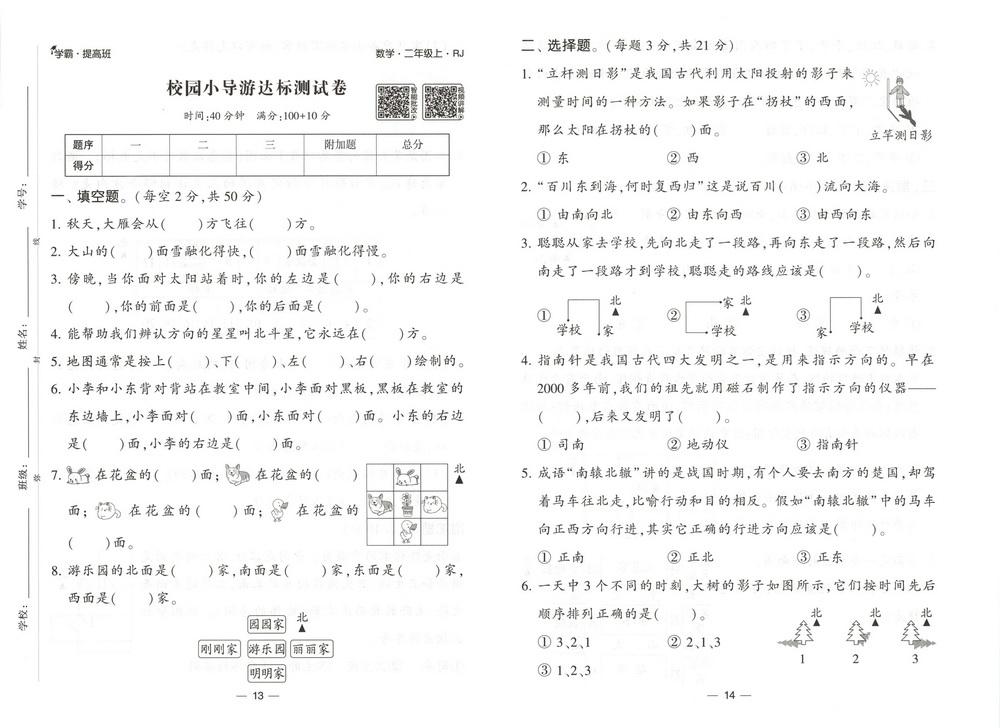 学霸·提高班
数学·二年级上·RJ
校园小导游达标测试卷
智能批改
视频讲解
时间:40分钟 满分:100+10分
题序 一 二 三 附加题 总分
得分
学号:
姓名:
班级:
学校:
线
封
弥
一、填空题。(每空2分,共50分)
1. 秋天,大雁会从( )方飞往( )方。
2. 大山的( )面雪融化得快,( )面雪融化得慢。
3. 傍晚,当你面对太阳站着时,你的左边是( ),你的右边是
( ),你的前面是( ),你的后面是( )。
4. 能帮助我们辨认方向的星星叫北斗星,它永远在( )方。
5. 地图通常是按上( )、下( )、左( )、右( )绘制的。
6. 小李和小东背对背站在教室中间,小李面对黑板,黑板在教室的
东边墙上,小李面对( )面,小东面对( )面。小东的右边
是( )面,小李的右边是( )面。
7. 在花盆的( )面; 在花盆的( )
面; 在花盆的( )面; 在花盆的
( )面。
北
8. 游乐园的北面是( )家,南面是( )家,东面是( )家,
西面是( )家。
园园家 北
刚刚家 游乐园 丽丽家
明明家
— 13 —
二、选择题。(每题3分,共21分)
1. “立杆测日影”是我国古代利用太阳投射的影子来
测量时间的一种方法。如果影子在“拐杖”的西面,
那么太阳在拐杖的( )面。
立竿测日影
① 东 ② 西 ③ 北
2. “百川东到海,何时复西归”这是说百川( )流向大海。
① 由南向北 ② 由东向西 ③ 由西向东
3. 聪聪从家去学校,先向北走了一段路,再向东走了一段路,然后向
南走了一段路才到学校,聪聪走的路线应该是( )。
① 学校 家 北 ② 家 学校 北 ③ 家 学校 北
4. 指南针是我国古代四大发明之一,是用来指示方向的。早在
2000多年前,我们的祖先就用磁石制作了指示方向的仪器——
( ),后来又发明了( )。
① 司南 ② 地动仪 ③ 指南针
5. 成语“南辕北辙”讲的是战国时期,有个人要去南方的楚国,却驾
着马车往北走,比喻行动和目的相反。假如“南辕北辙”中的马车
向正西方向行进,其实它正确的行进方向应该是( )。
① 正南 ② 正北 ③ 正东
6. 一天中3个不同的时刻,大树的影子如图所示,它们按时间先后
顺序排列正确的是( )。
① 3、2、1 ② 2、1、3
③ 1、2、3
北 北 北
1 2 3
— 14 —